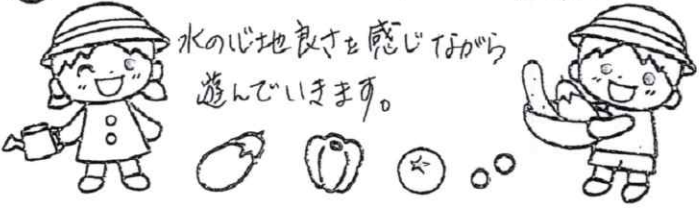 水の心地良さを感じながら
遊んでいきます。